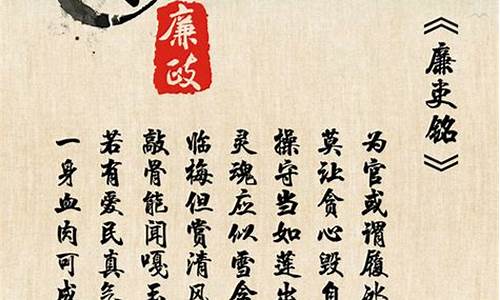 《廉吏铭》
为官或谓履冰
莫让贪心毁自
操守当如莲出
灵魂应似雪含
临梅但赏清风
敲骨能闻嘎玉
若有爱民真气
一身血肉可成
廉政